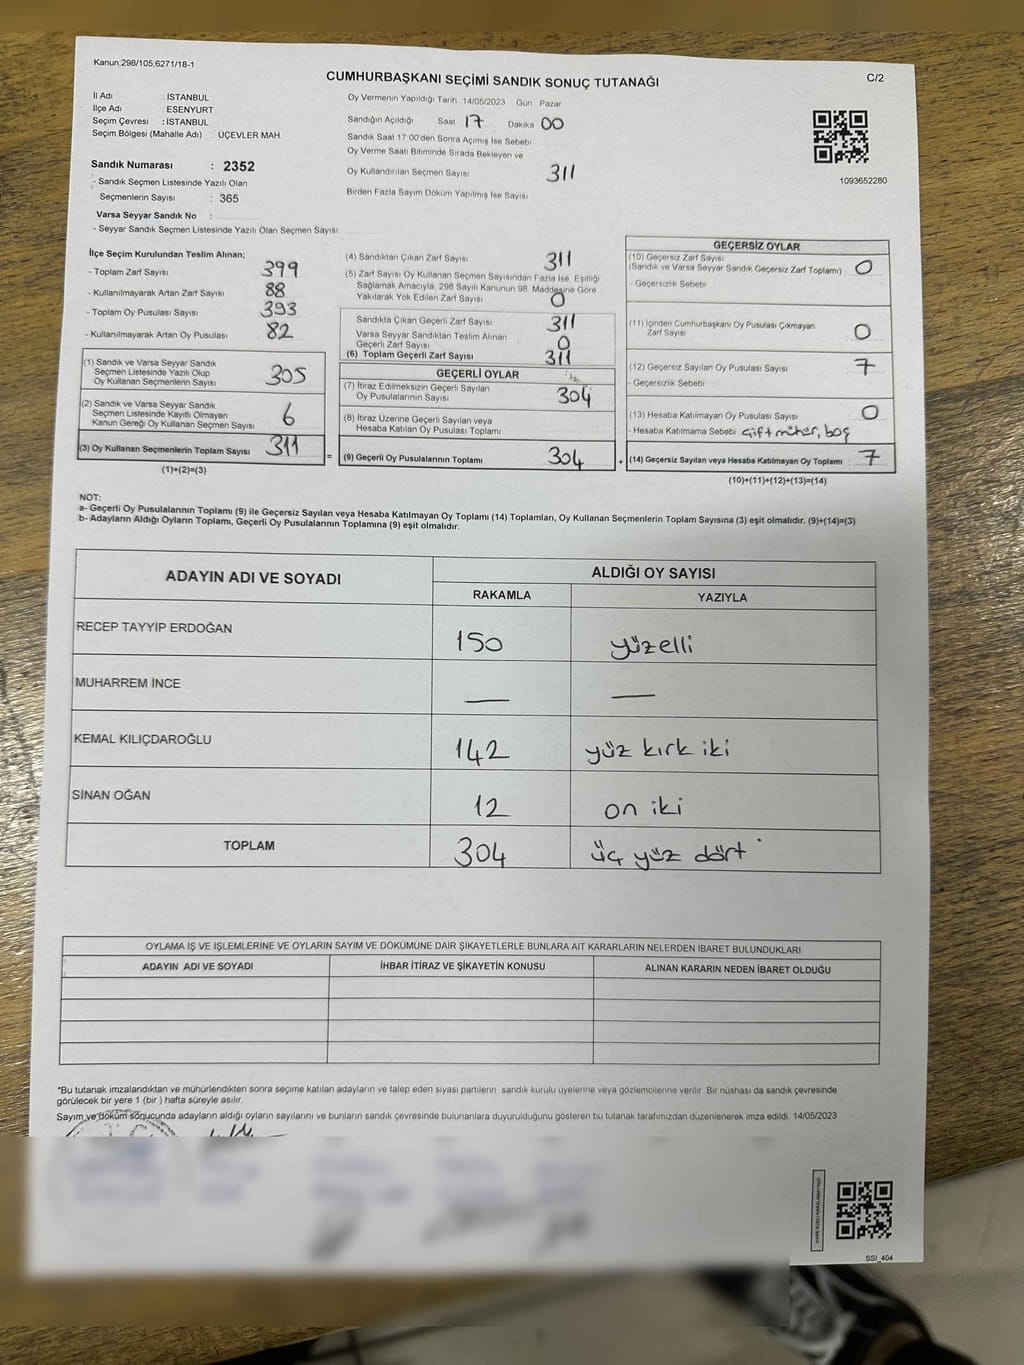 Kanun;298/105,6271/18-1
CUMHURBAŞKANI SEÇİMİ SANDIK SONUÇ TUTANAĞI
C/2
İl Adı : İSTANBUL
İlçe Adı : ESENYURT
Seçim Çevresi : İSTANBUL
Seçim Bölgesi (Mahalle Adı) : ÜÇEVLER MAH.
Sandık Numarası : 2352
- Sandık Seçmen Listesinde Yazılı Olan
Seçmenlerin Sayısı : 365
Varsa Seyyar Sandık No :
- Seyyar Sandık Seçmen Listesinde Yazılı Olan Seçmen Sayısı:
Oy Vermenin Yapıldığı Tarih 14/05/2023 Gün Pazar
Sandığın Açıldığı Saat 17 Dakika 00
Sandık Saat 17.00'den Sonra Açımış İse Sebebi
Oy Verme Saati Bitiminde Sırada Bekleyen ve
Oy Kullandırılan Seçmen Sayısı 311
Birden Fazla Sayım Döküm Yapılmış İse Sayısı
1093652280
İlçe Seçim Kurulundan Teslim Alınan;
- Toplam Zarf Sayısı 399
- Kullanılmayarak Artan Zarf Sayısı 88
- Toplam Oy Pusulası Sayısı 393
- Kullanılmayarak Artan Oy Pusulası 82
(1) Sandık ve Varsa Seyyar Sandık
Seçmen Listesinde Yazılı Olup
Oy Kullanan Seçmenlerin Sayısı 305
(2) Sandık ve Varsa Seyyar Sandık
Seçmen Listesinde Kayıtlı Olmayan
Kanun Gereği Oy Kullanan Seçmen Sayısı 6
(3) Oy Kullanan Seçmenlerin Toplam Sayısı 311
(1)+(2)=(3)
(4) Sandıktan Çıkan Zarf Sayısı 311
(5) Zarf Sayısı Oy Kullanan Seçmen Sayısından Fazla İse, Eşitliği
Sağlamak Amacıyla, 298 Sayılı Kanunun 98. Maddesine Göre
Yakılarak Yok Edilen Zarf Sayısı 0
Sandıkta Çıkan Geçerli Zarf Sayısı 311
Varsa Seyyar Sandıktan Teslim Alınan
Geçerli Zarf Sayısı 0
(6) Toplam Geçerli Zarf Sayısı 311
GEÇERLİ OYLAR
(7) İtiraz Edilmeksizin Geçerli Sayılan
Oy Pusulalarının Sayısı 304
(8) İtiraz Üzerine Geçerli Sayılan veya
Hesaba Katılan Oy Pusulası Toplamı
= (9) Geçerli Oy Pusulalarının Toplamı 304 +
GEÇERSİZ OYLAR
(10) Geçersiz Zarf Sayısı
(Sandık ve Varsa Seyyar Sandık Geçersiz Zarf Toplamı) 0
- Geçersizlik Sebebi
(11) İçinden Cumhurbaşkanı Oy Pusulası Çıkmayan
Zarf Sayısı 0
(12) Geçersiz Sayılan Oy Pusulası Sayısı 7
- Geçersizlik Sebebi
(13) Hesaba Katılmayan Oy Pusulası Sayısı 0
- Hesaba Katılmama Sebebi çift mühür, boş
(14) Geçersiz Sayılan veya Hesaba Katılmayan Oy Toplamı : 7
(10)+(11)+(12)+(13)=(14)
NOT:
a- Geçerli Oy Pusulalarının Toplamı (9) ile Geçersiz Sayılan veya Hesaba Katılmayan Oy Toplamı (14) Toplamları, Oy Kullanan Seçmenlerin Toplam Sayısına (3) eşit olmalıdır. (9)+(14)=(3)
b- Adayların Aldığı Oyların Toplamı, Geçerli Oy Pusulalarının Toplamına (9) eşit olmalıdır.
ADAYIN ADI VE SOYADI ALDIĞI OY SAYISI
RAKAMLA YAZIYLA
RECEP TAYYİP ERDOĞAN 150 yüzelli
MUHARREM İNCE — —
KEMAL KILIÇDAROĞLU 142 yüz kırk iki
SİNAN OĞAN 12 on iki
TOPLAM 304 üç yüz dört
OYLAMA İŞ VE İŞLEMLERİNE VE OYLARIN SAYIM VE DÖKÜMÜNE DAİR ŞİKAYETLERLE BUNLARA AİT KARARLARIN NELERDEN İBARET BULUNDUKLARI
ADAYIN ADI VE SOYADI İHBAR İTİRAZ VE ŞİKAYETİN KONUSU ALINAN KARARIN NEDEN İBARET OLDUĞU
*Bu tutanak imzalandıktan ve mühürlendikten sonra seçime katılan adayların ve talep eden siyasi partilerin sandık kurulu üyelerine veya gözlemcilerine verilir. Bir nüshası da sandık çevresinde
görülecek bir yere 1 (bir ) hafta süreyle asılır.
Sayım ve döküm sonucunda adayların aldığı oyların sayılarını ve bunların sandık çevresinde bulunanlara duyurulduğunu gösteren bu tutanak tarafımızdan düzenlenerek imza edildi. 14/05/2023
SSI_404